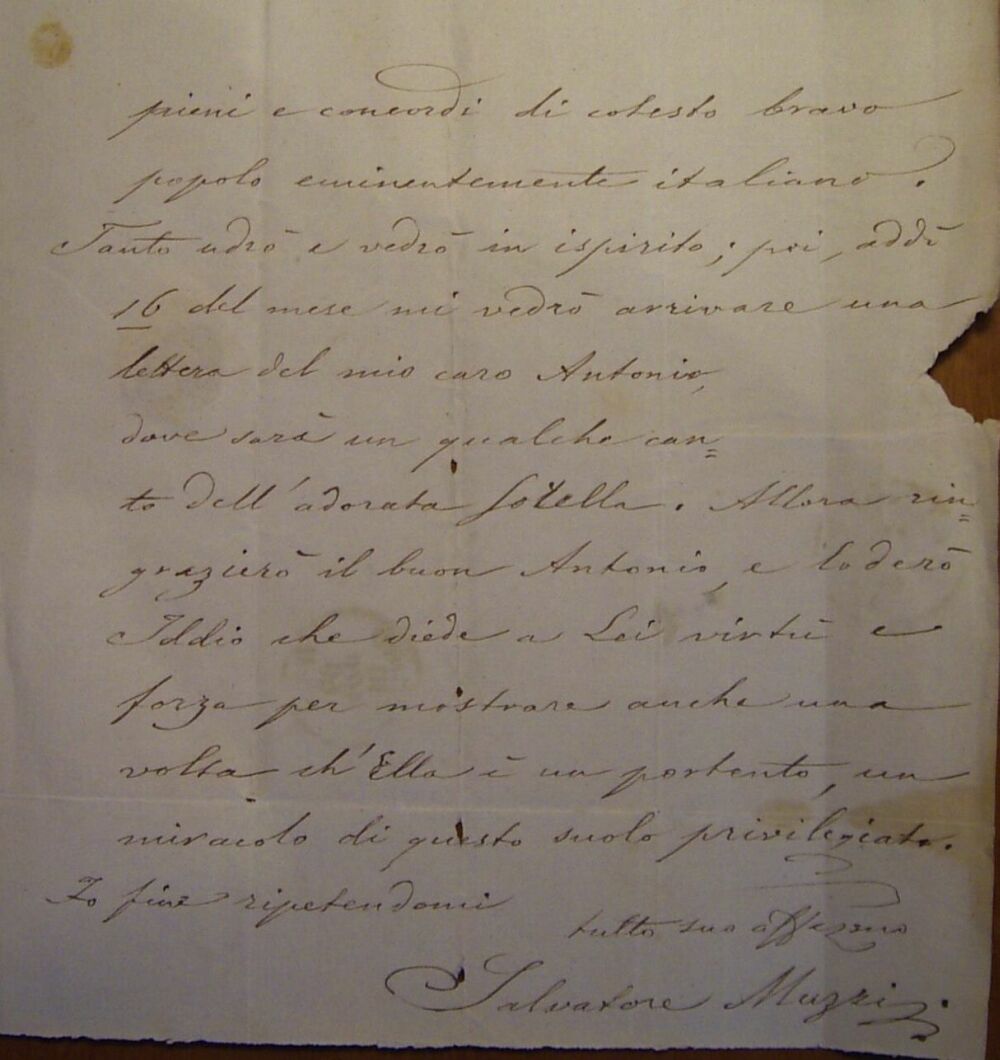 pieni e concordi di cotesto bravo
popolo eminentemente italiano.
Tanto udrò e vedrò in ispirito; poi, addì
16 del mese mi vedrò arrivare una
lettera del mio caro Antonio,
dove sarà un qualche can=
to dell'adorata Sorella. Allora rin=
grazierò il buon Antonio, e loderò
Iddio che diede a Lei virtù e
forza per mostrare anche una
volta ch'Ella è un portento, un
miracolo di questo suolo privilegiato.
Io fine ripetendomi
tutto suo affezmo
Salvatore Muzzi.